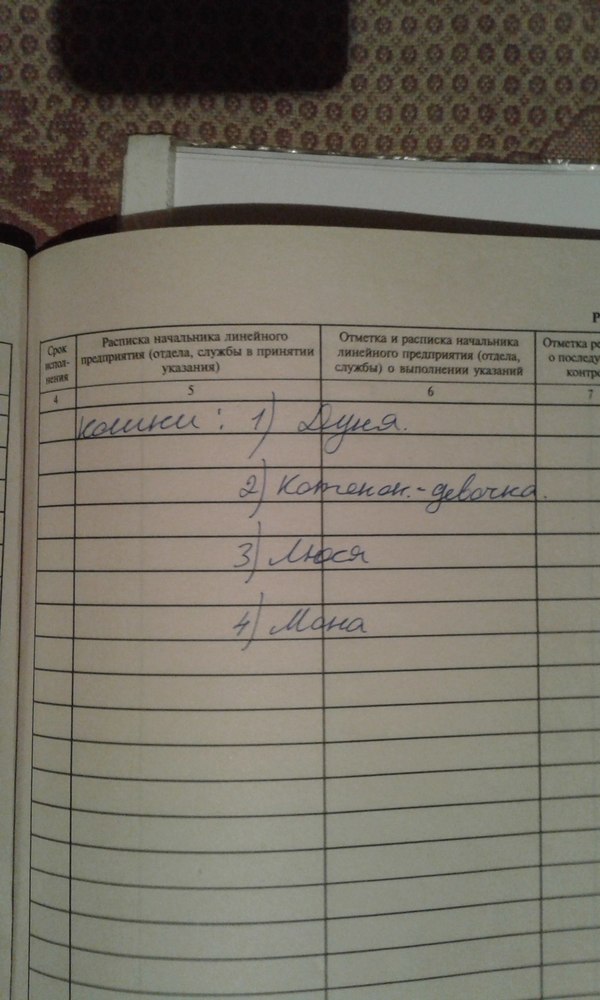 Р
Срок
испол-
нения
Расписка начальника линейного
предприятия (отдела, службы в принятии
указания)
Отметка и расписка начальника
линейного предприятия (отдела,
службы) о выполнении указаний
Отметка ре
о последу
контро
4 5 6 7
кошки: 1) Дуня.
2) Котенок.-девочка.
3) Люся
4) Мона